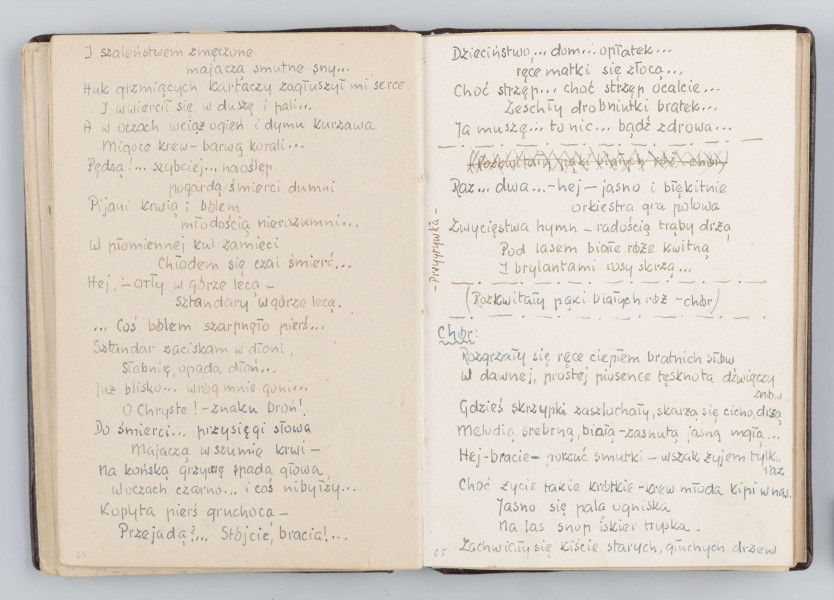 I szaleństwem zmęczone
majaczą smutne sny...
Huk grzmiących kartaczy zagłuszył mi serce
I wwiercił się w duszę i pali...
A w oczach wciąż ogień i dymu kurzawa
Migoce krew – barwą korali...
Pędzą!... szybciej... naoślep
pogardą śmierci dumni
Pijani krwią i bólem
młodością nierozumni...
W płomiennej kul zamieci
Chłodem się czai śmierć...
Hej, – orły w górze lecą –
Sztandary w górze lecą.
... Coś bólem szarpnęło pierś...
Sztandar zaciskam w dłoni,
Słabnię, opada dłoń...
Już blisko... wróg mnie goni...
O Chryste! – znaku broń!
Do śmierci... przysięgi słowa
Majaczą w szumie krwi –
Na końską grzywę spada głowa
W oczach czarno... i coś niby łzy...
Kopyta pierś gruchocą –
Przejadą?... Stójcie, bracia!...
64
Dzieciństwo... dom... opłatek...
ręce matki się złocą...
Choć strzęp... choć strzęp ocalcie...
Zeschły drobniutki bratek...
Ja muszę... to nic... bądź zdrowa...
(Rozkwitały pąki białych róż – chór)
Raz... dwa... – hej – jasno i błękitnie
orkiestra gra polowa
Zwycięstwa hymn – radością trąby drżą
Pod lasem białe róże kwitną
I brylantami rosy skrzą...
– Przygrywka –
(Rozkwitały pąki białych róż – chór)
Chór:
Rozgrzały się ręce ciepłem bratnich słów
W dawnej, prostej piosence tęsknota dźwięczy
znów.
Gdzieś skrzypki zaszlochały, skarżą się cicho, drżą
Melodią srebrną, białą – zasnutą jasną mgłą...
Hej – bracie – porzuć smutki – wszak żyjem tylko
raz
Choć życie takie krótkie – krew młoda kipi w nas.
Jasno się palą ogniska
Na las snop iskier tryska.
Zachwiały się kiście starych, głuchych drzew
65